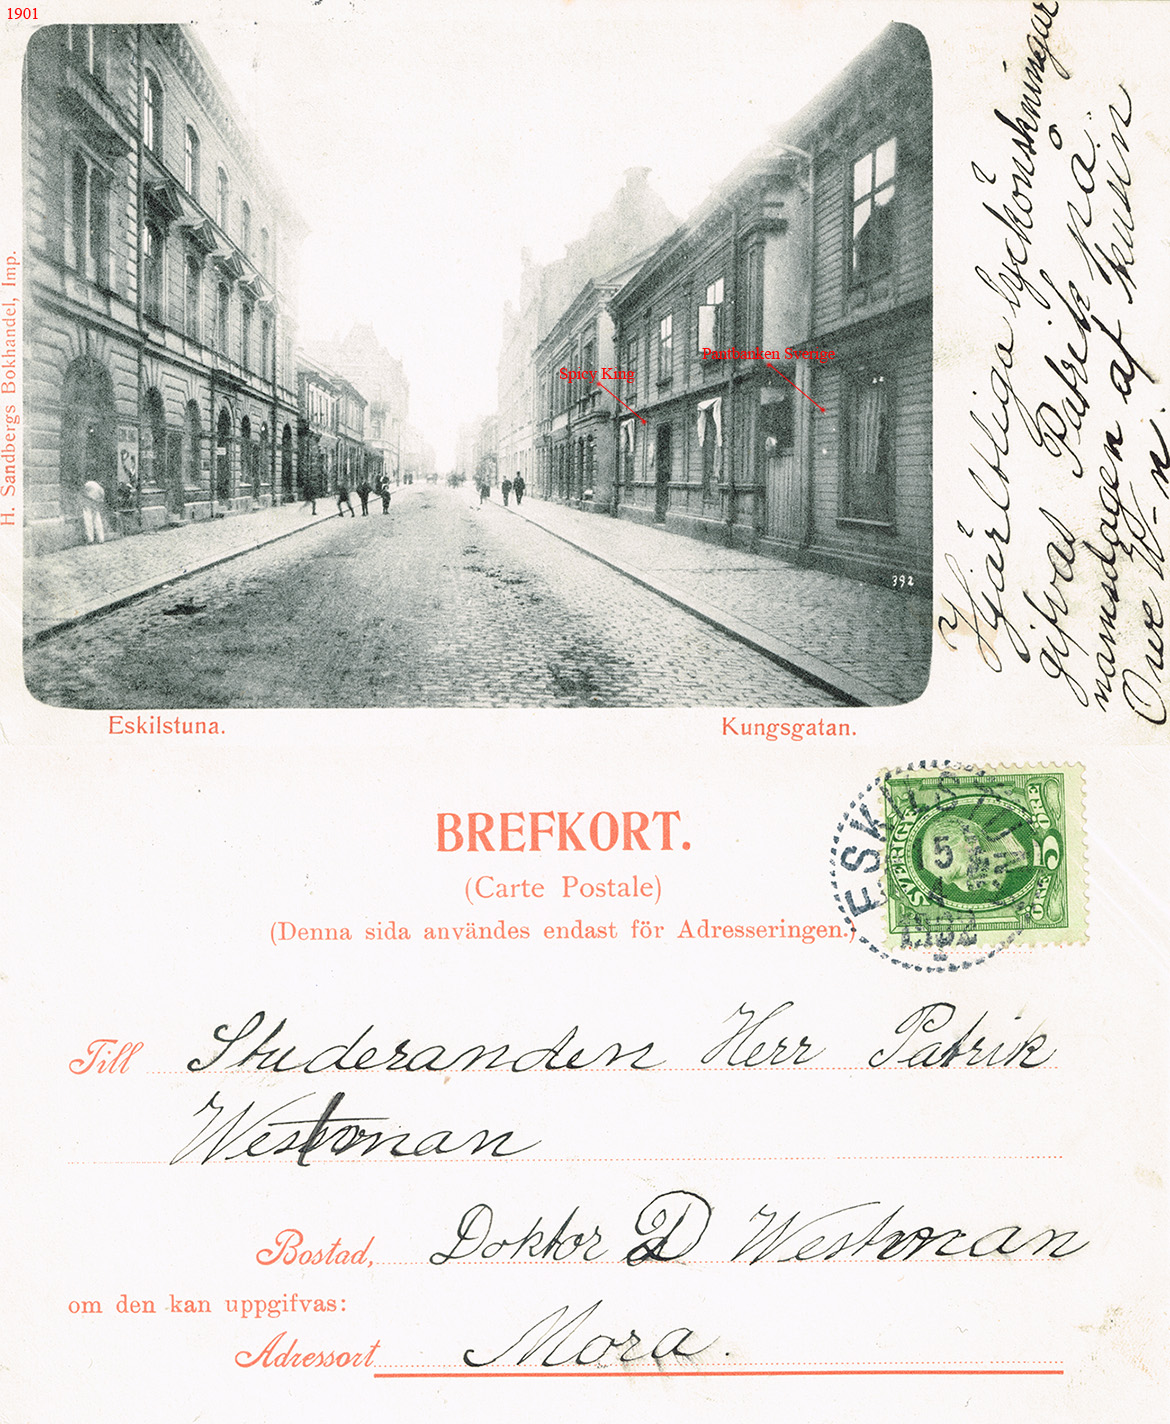 1901
H. Sandbergs Bokhandel, Imp.
Spicy King
Pantbanken Sverige
392
Eskilstuna.
Kungsgatan.
Hjärtliga lyckönskningar
gifvas Patrik på
namsdagen af kusin
Ove W-n.
BREFKORT.
(Carte Postale)
(Denna sida användes endast för Adresseringen.)
ESKILSTUNA
15
4
1902
SVERIGE
5
ÖRE
ÖRE
Till Studeranden Herr Patrik
Westman
Bostad, Doktor D Westman
om den kan uppgifvas:
Adressort Mora.